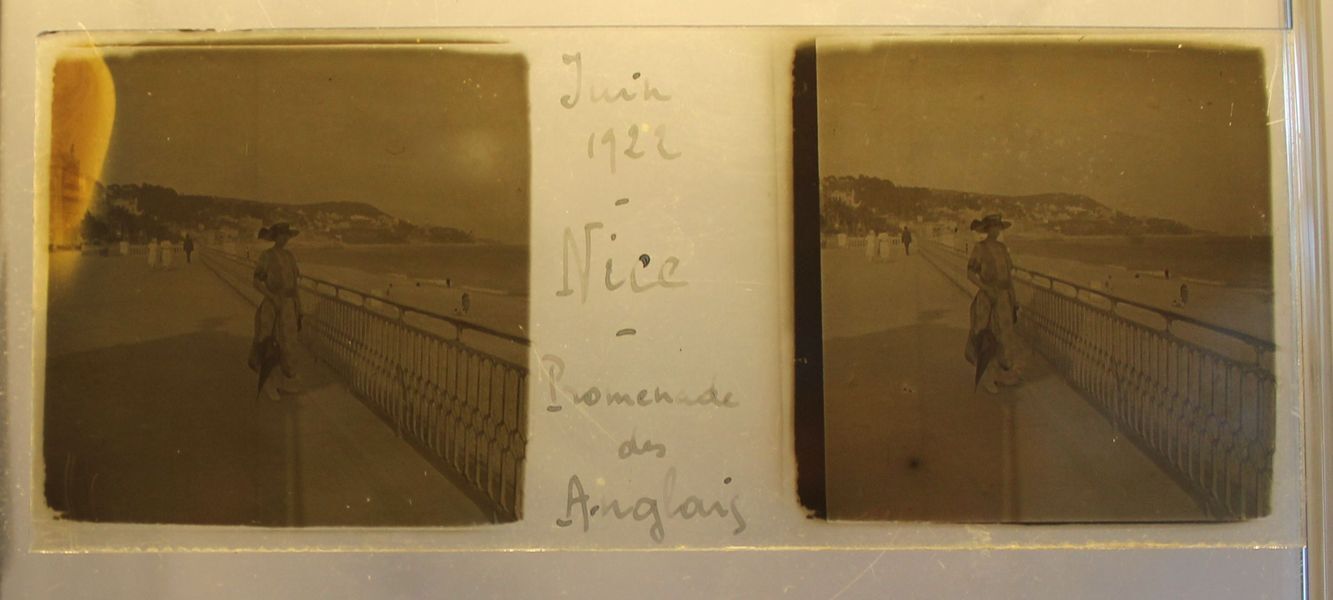 Juin
1922
-
Nice
-
Promenade
des
Anglais